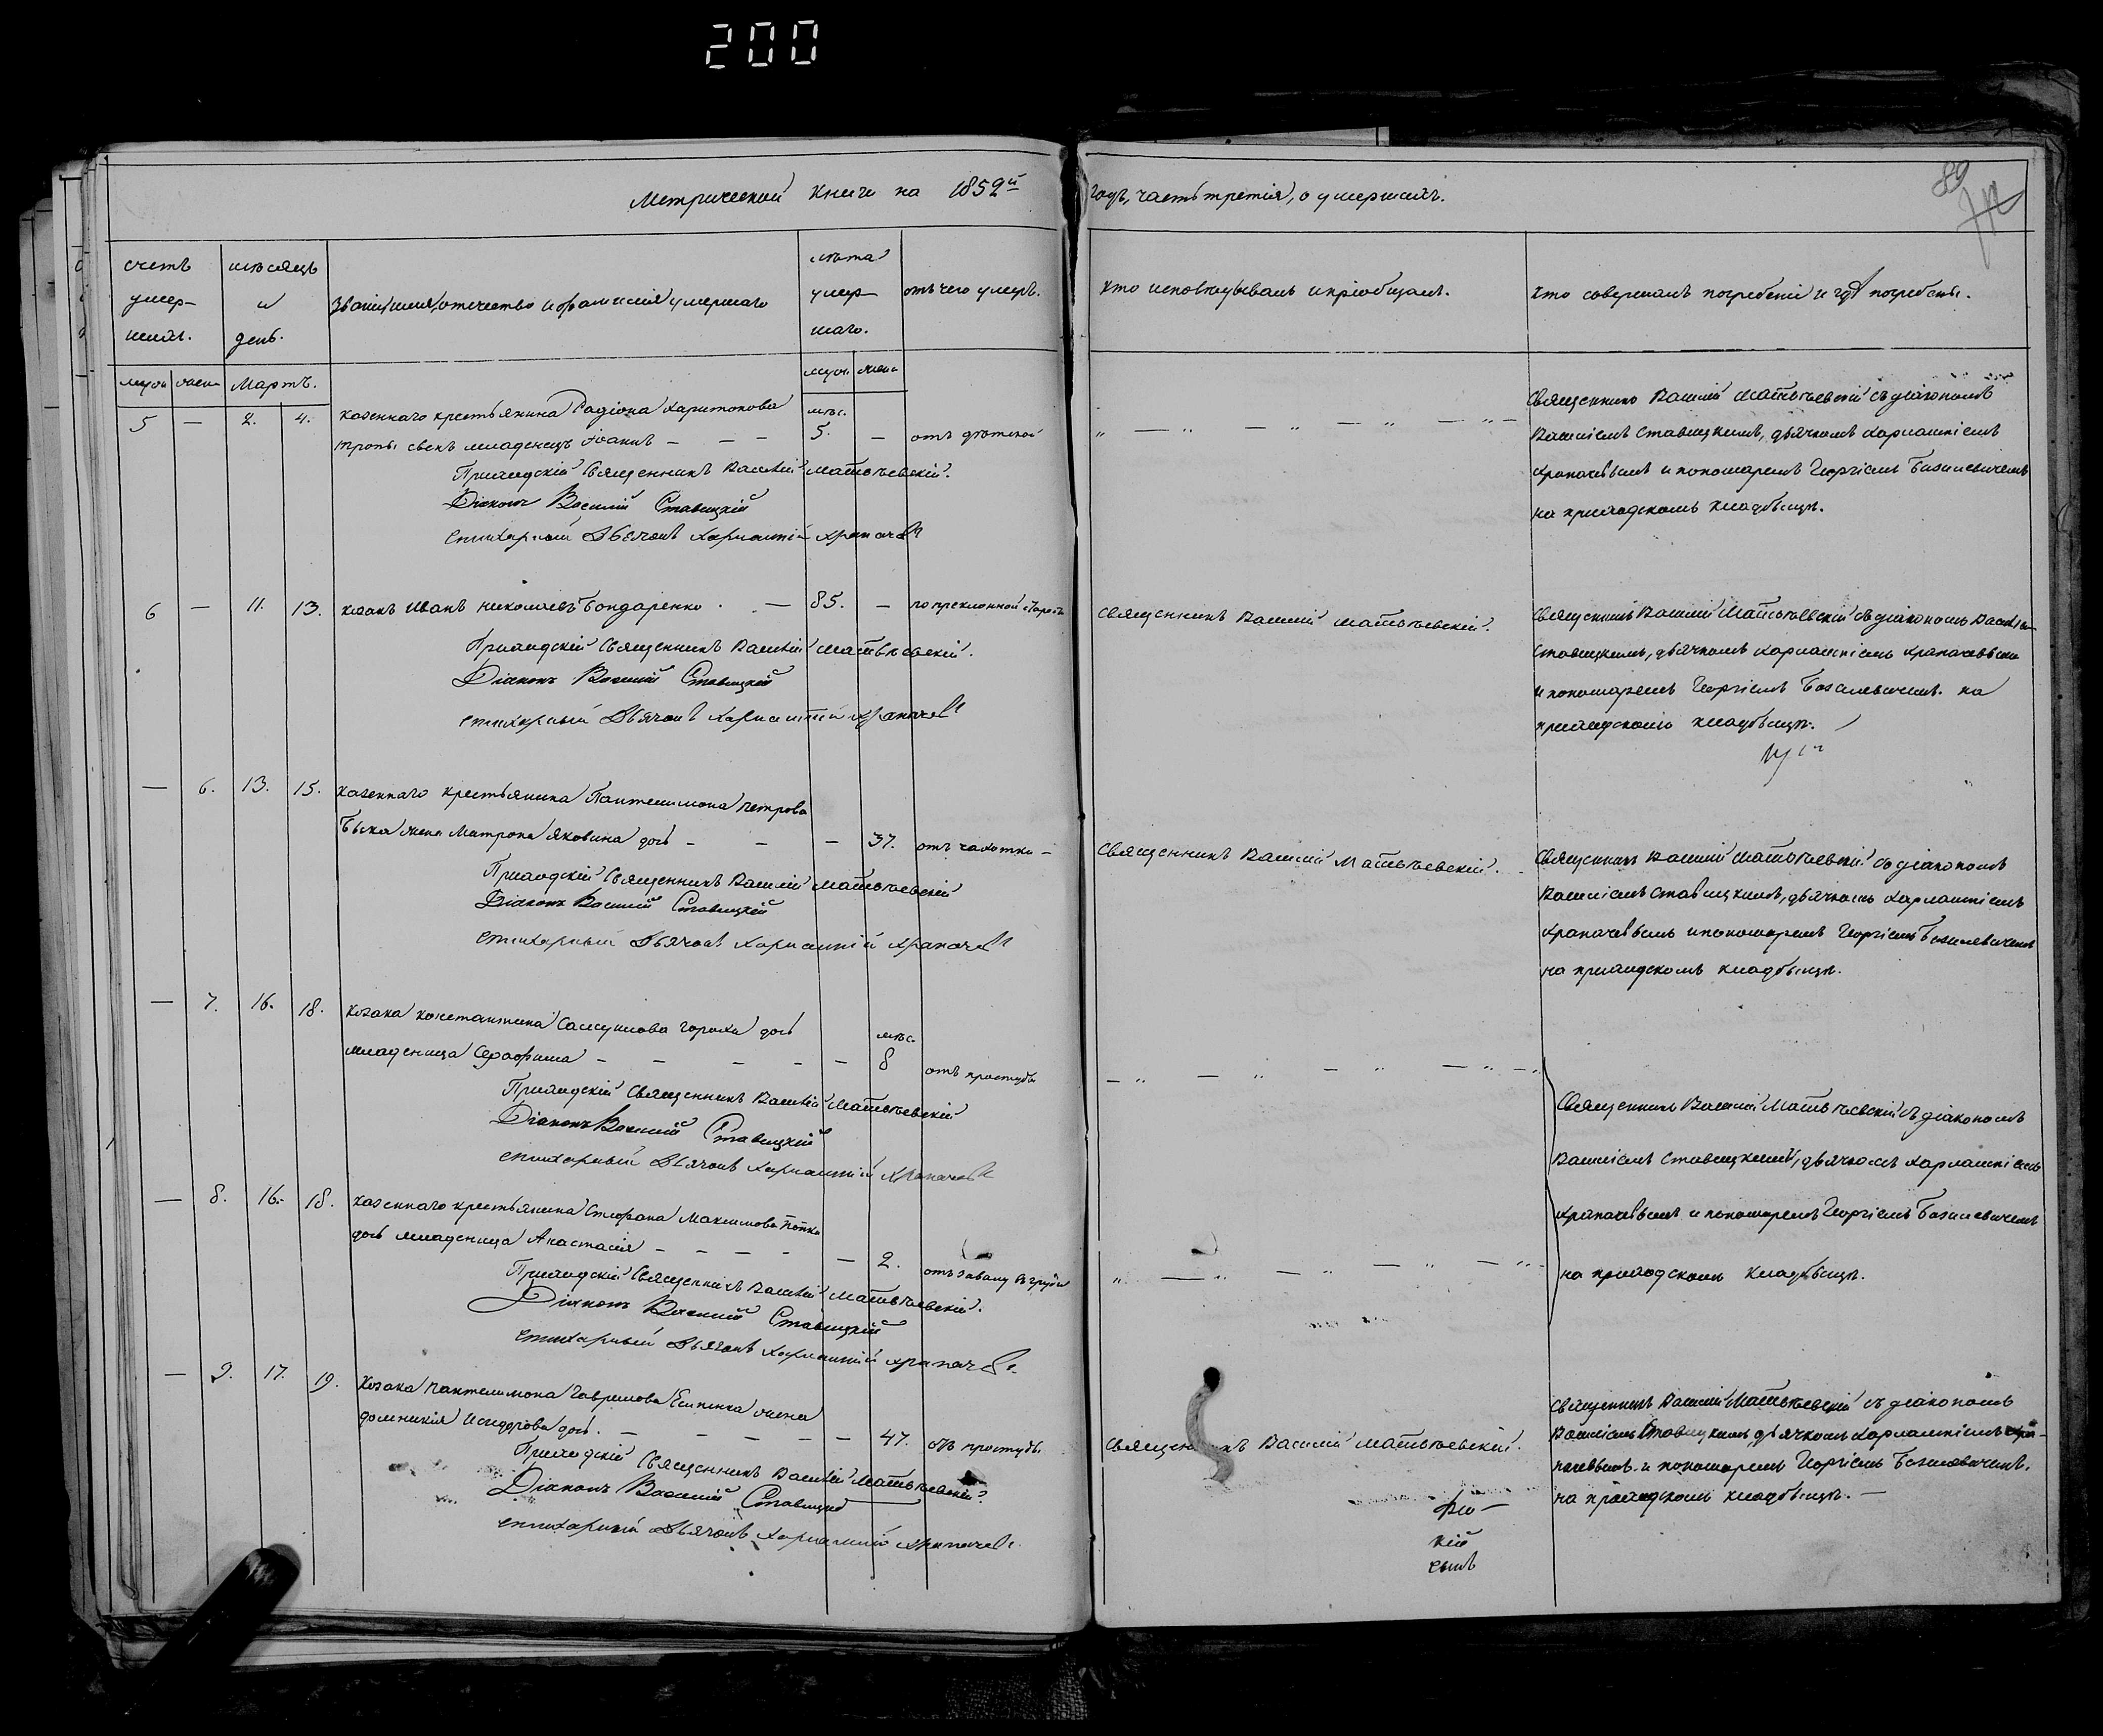 200
Метрической книги на 1852й годъ, часть третія, о умершихъ.
89
счетъ умер-шихъ.
мѣсяцъ и день.
званіе, имя, отечество и фамилія умершаго
лѣта умер-шаго.
отъ чего умеръ.
кто исповѣдывалъ и пріобщалъ.
кто совершалъ погребеніе и гдѣ погребены.
муж. жен. Мартъ. муж. жен.
5 — 2. 4. казеннаго крестьянина Радіона Харитонова мѣс.
сынъ младенецъ Іоаннъ — — — 5. — отъ дѣтской
Приходскій Священникъ Василій Матвѣевскій.
Діаконъ Василій Ставицкій
стихарный Дьячокъ Харлампій
Священникъ Василій Матвѣевскій съ діакономъ
Василіемъ Ставицкимъ, дьячкомъ Харлампіемъ
и пономаремъ Георгіемъ Базилевичемъ
на приходскомъ кладбищѣ.
6 — 11. 13. козакъ Иванъ Николаевъ Бондаренко — 85. — по преклонной старости
Приходскій Священникъ Василій Матвѣевскій.
Діаконъ Василій Ставицкій
стихарный Дьячокъ Харлампій
Священникъ Василій Матвѣевскій.
Священникъ Василій Матвѣевскій съ діакономъ Василіемъ
Ставицкимъ, дьячкомъ Харлампіемъ
и пономаремъ Георгіемъ Базилевичемъ на
приходскомъ кладбищѣ.
— 6. 13. 15. казеннаго крестьянина Пантелимона Петрова
жена Матрона Яковлева дочь — — — 37. отъ чахотки —
Приходскій Священникъ Василій Матвѣевскій
Діаконъ Василій Ставицкій
стихарный Дьячокъ Харлампій
Священникъ Василій Матвѣевскій.
Священникъ Василій Матвѣевскій съ діакономъ
Василіемъ Ставицкимъ, дьячкомъ Харлампіемъ
и пономаремъ Георгіемъ Базилевичемъ
на приходскомъ кладбищѣ.
— 7. 16. 18. козака Константина Самуилова Горохи дочь мѣс.
младеница Серафима — — — — — 8 отъ простуды
Приходскій Священникъ Василій Матвѣевскій
Діаконъ Василій Ставицкій
стихарный Дьячокъ Харлампій
Священникъ Василій Матвѣевскій съ діакономъ
Василіемъ Ставицкимъ, дьячкомъ Харлампіемъ
и пономаремъ Георгіемъ Базилевичемъ
на приходскомъ кладбищѣ.
— 8. 16. 18. казеннаго крестьянина Стефана Максимова
дочь младеница Анастасія — — — — — 2. отъ завалу въ груди
Приходскій Священникъ Василій Матвѣевскій.
Діаконъ Василій Ставицкій
стихарный Дьячокъ Харлампій
— 9. 17. 19. козака Пантелимона Гаврилова жена
Домникія Исидорова дочь. — — — — — 47. отъ простуды.
Приходскій Священникъ Василій Матвѣевскій.
Діаконъ Василій Ставицкій
стихарный Дьячокъ Харлампій
Священникъ Василій Матвѣевскій.
Священникъ Василій Матвѣевскій съ діакономъ
Василіемъ Ставицкимъ, дьячкомъ Харлампіемъ
и пономаремъ Георгіемъ Базилевичемъ.
на приходскомъ кладбищѣ. —
кій